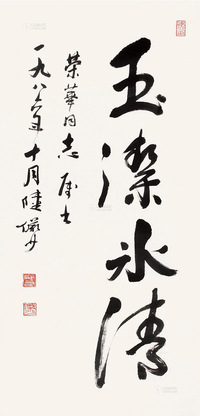 玉潔冰清
榮華同志屬書
一九八六年十月陸儼少